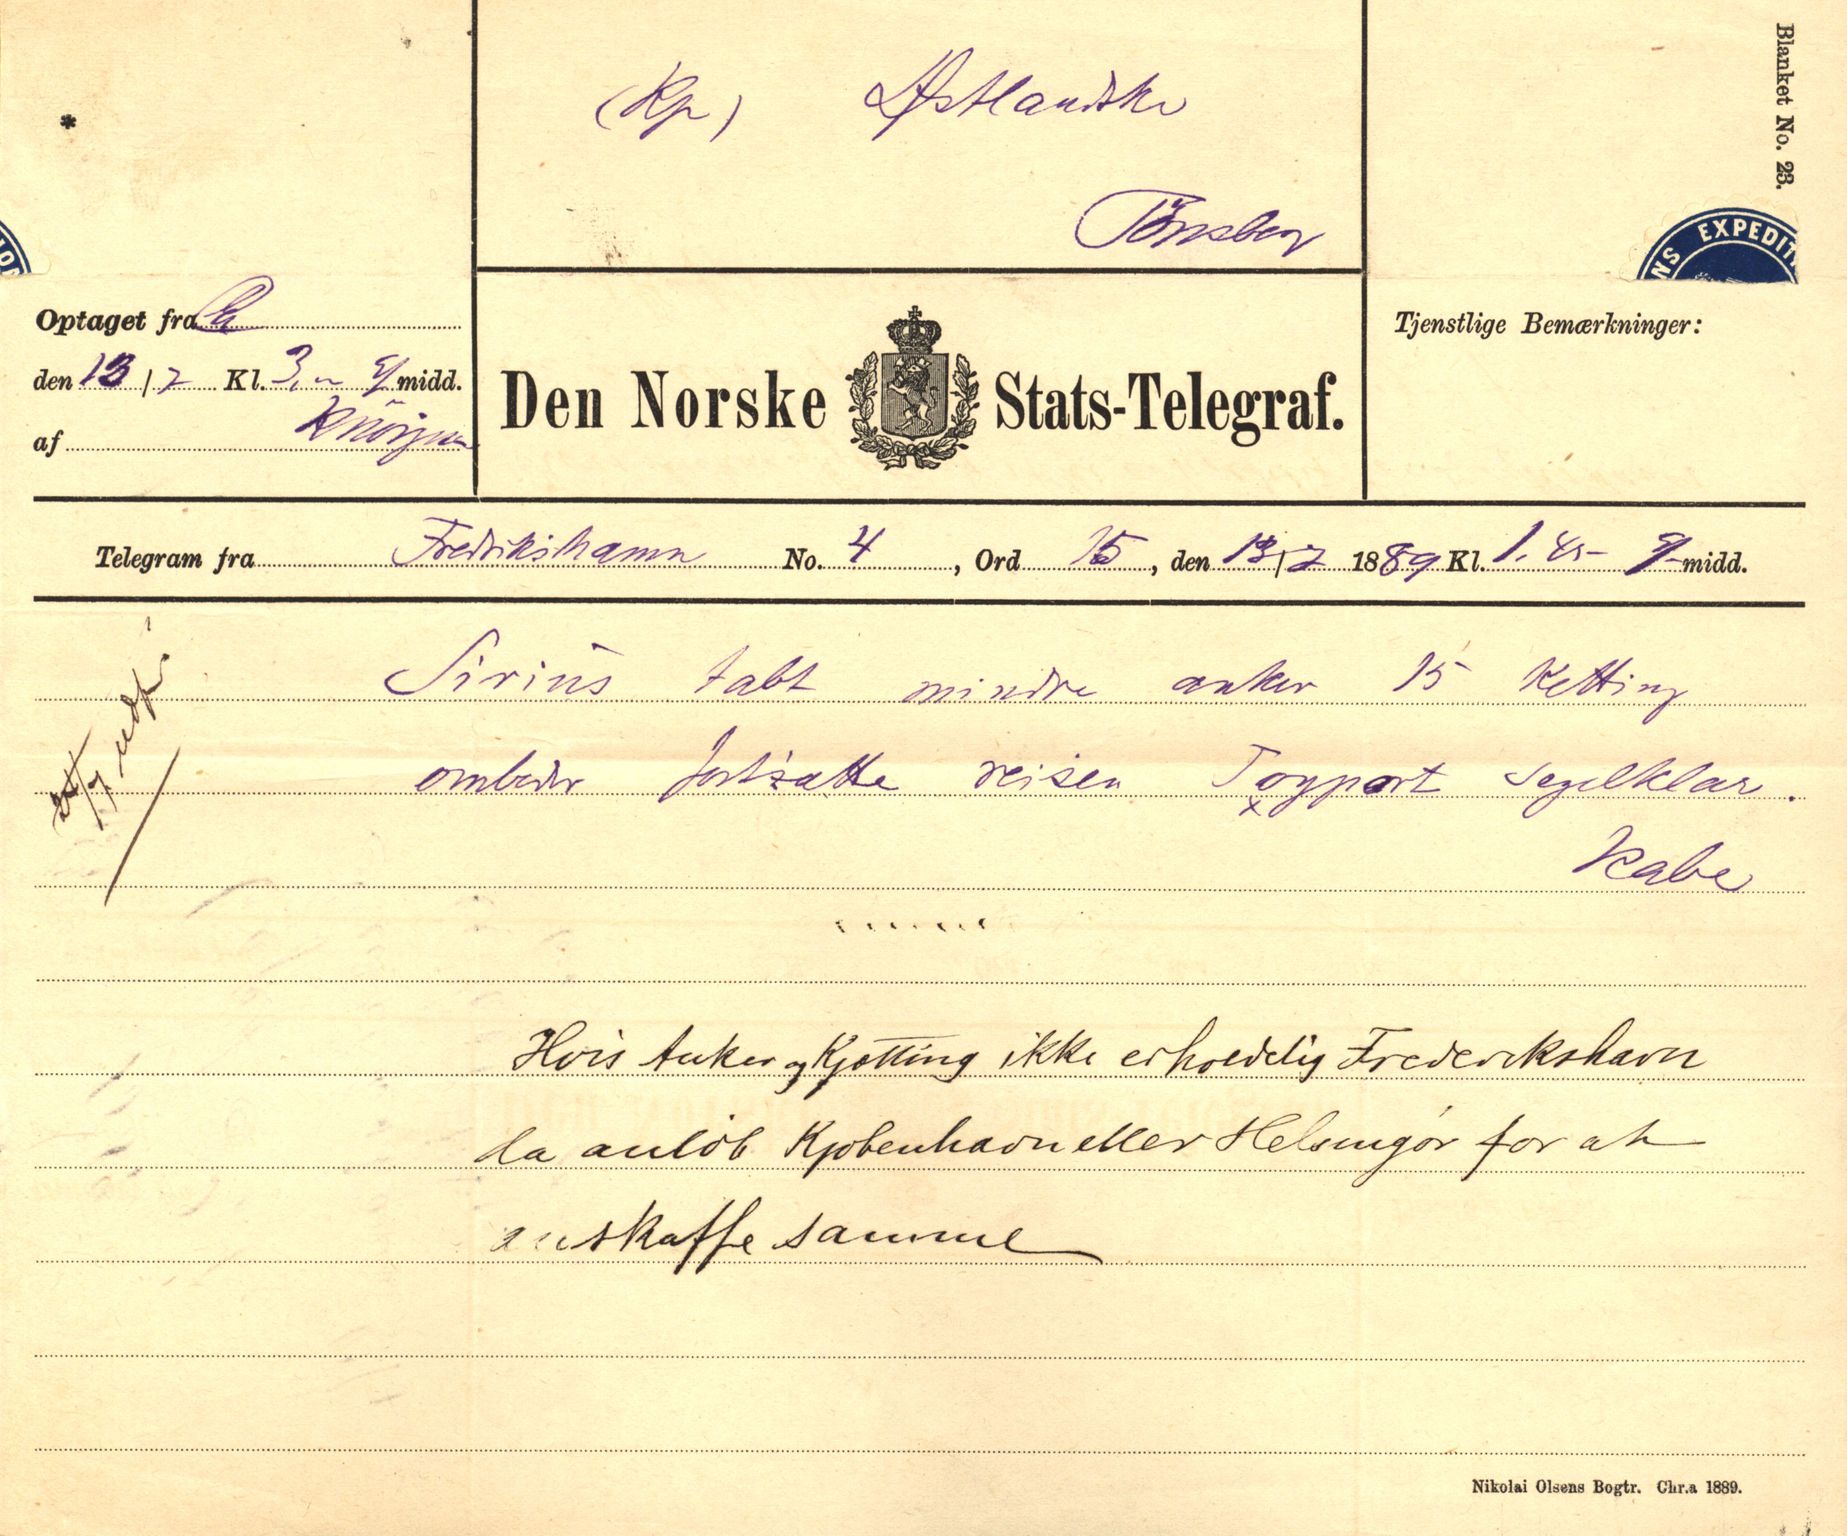 Blanket No. 23.
(Kp) Østlandske
Tönsberg
NS EXPEDIT
Optaget fra Ca
den 13/7 Kl. 3, E/midd.
af
Den Norske Stats-Telegraf.
Tjenstlige Bemærkninger:
Telegram fra Fredrikshamn No. 4, Ord 15, den 13/7 1889 Kl. 1.45 E/midd.
Sirius tabt mindre anker 15 Ketting
ombeder fortsätte reisen Toyport segelklar.
Kabe
Hvis Anker og Kjøtting ikke erholdelig Frederikshavn
da anløb Kjøbenhavn eller Helsingør for at
anskaffe samme
Nikolai Olsens Bogtr. Chr.a 1889.